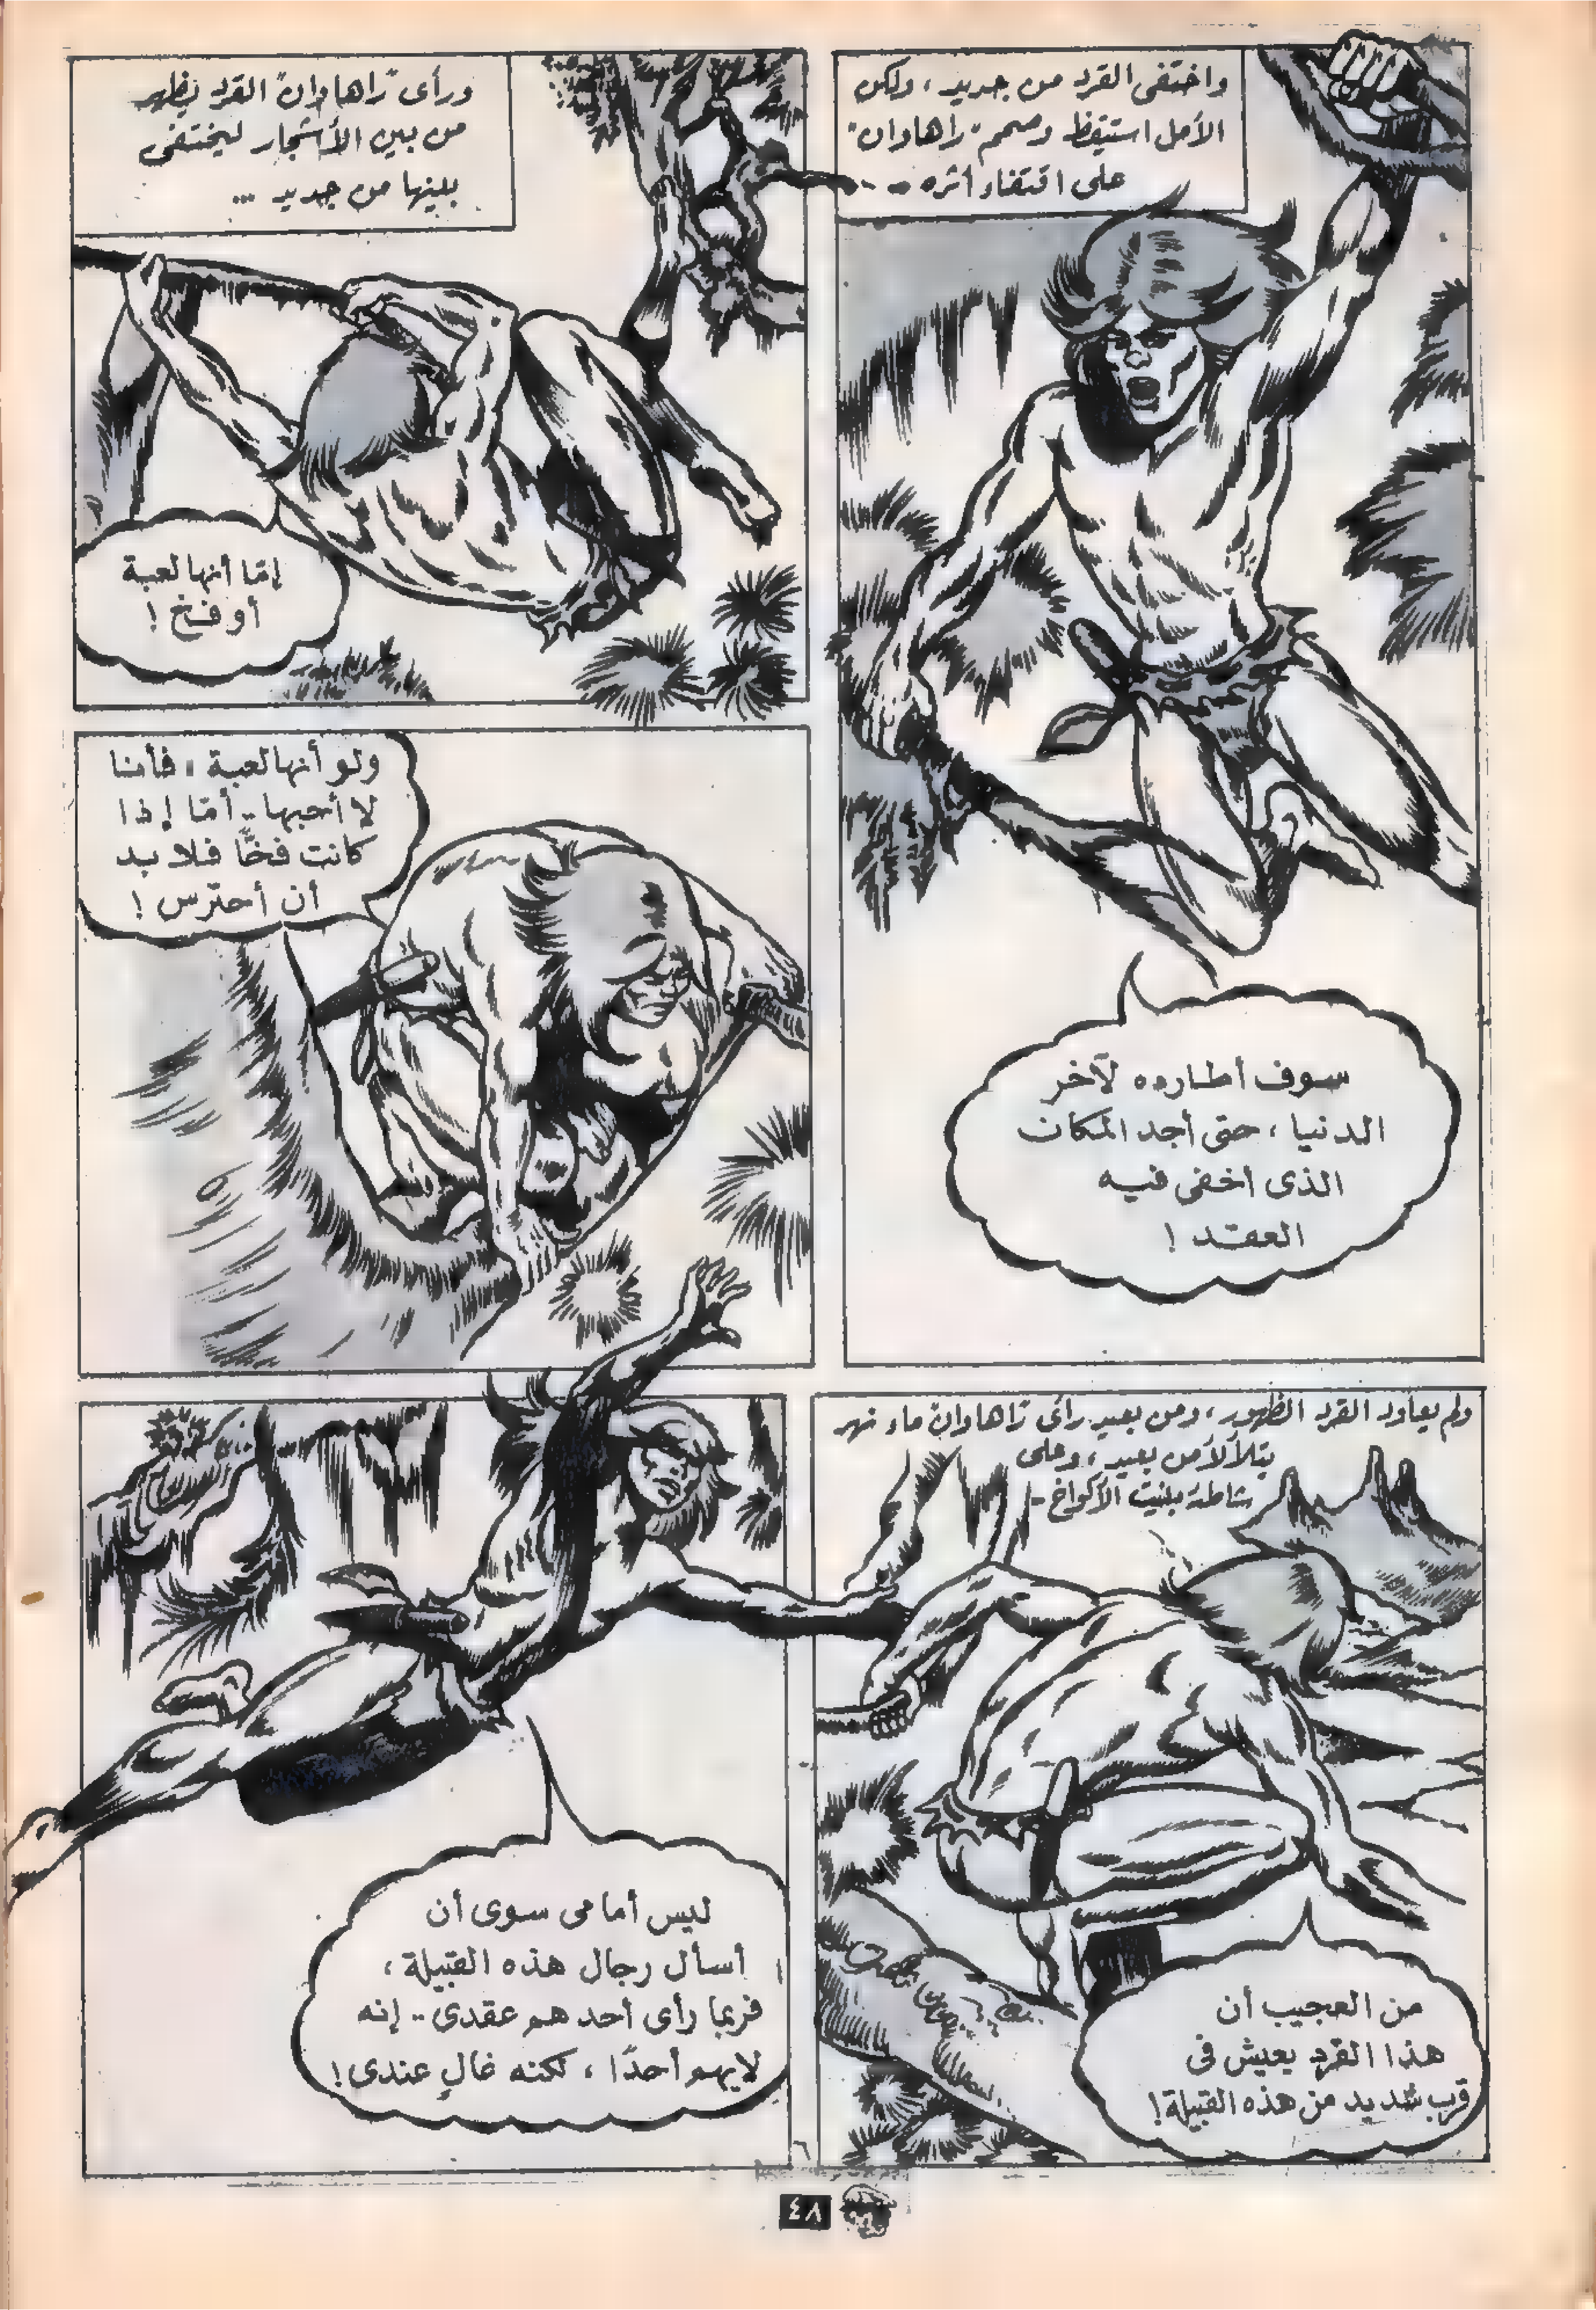 واختفى القرد من جديد، ولكن
الأمل استيقظ وصمم "راهاوان"
على اقتفاء أثره --
سوف أطارده لآخر
الدنيا، حتى أجد المكان
الذى أخفى فيه
العقد !
ورأى "راهاوان" القرد يظهر
من بين الأشجار ليختفى
بينها من جديد ...
إمّا أنها لعبة
أو فخ !
ولو أنها لعبة، فأنا
لا أحبها .. أمّا إذا
كانت فخًّا فلا بد
أن أحترس !
ولم يعاود القرد الظهور، ومن بعيد رأى "راهاوان" ماء نهر
يتلألأ من بعيد، وعلى
شاطئه بنيت الأكواخ -
من العجيب أن
هذا القرد يعيش فى
قرب شديد من هذه القبيلة !
ليس أمامى سوى أن
أسأل رجال هذه القبيلة،
فربما رأى أحدهم عقدى .. إنه
لا يهم أحدًا، لكنه غالٍ عندى !
٦
٤٨